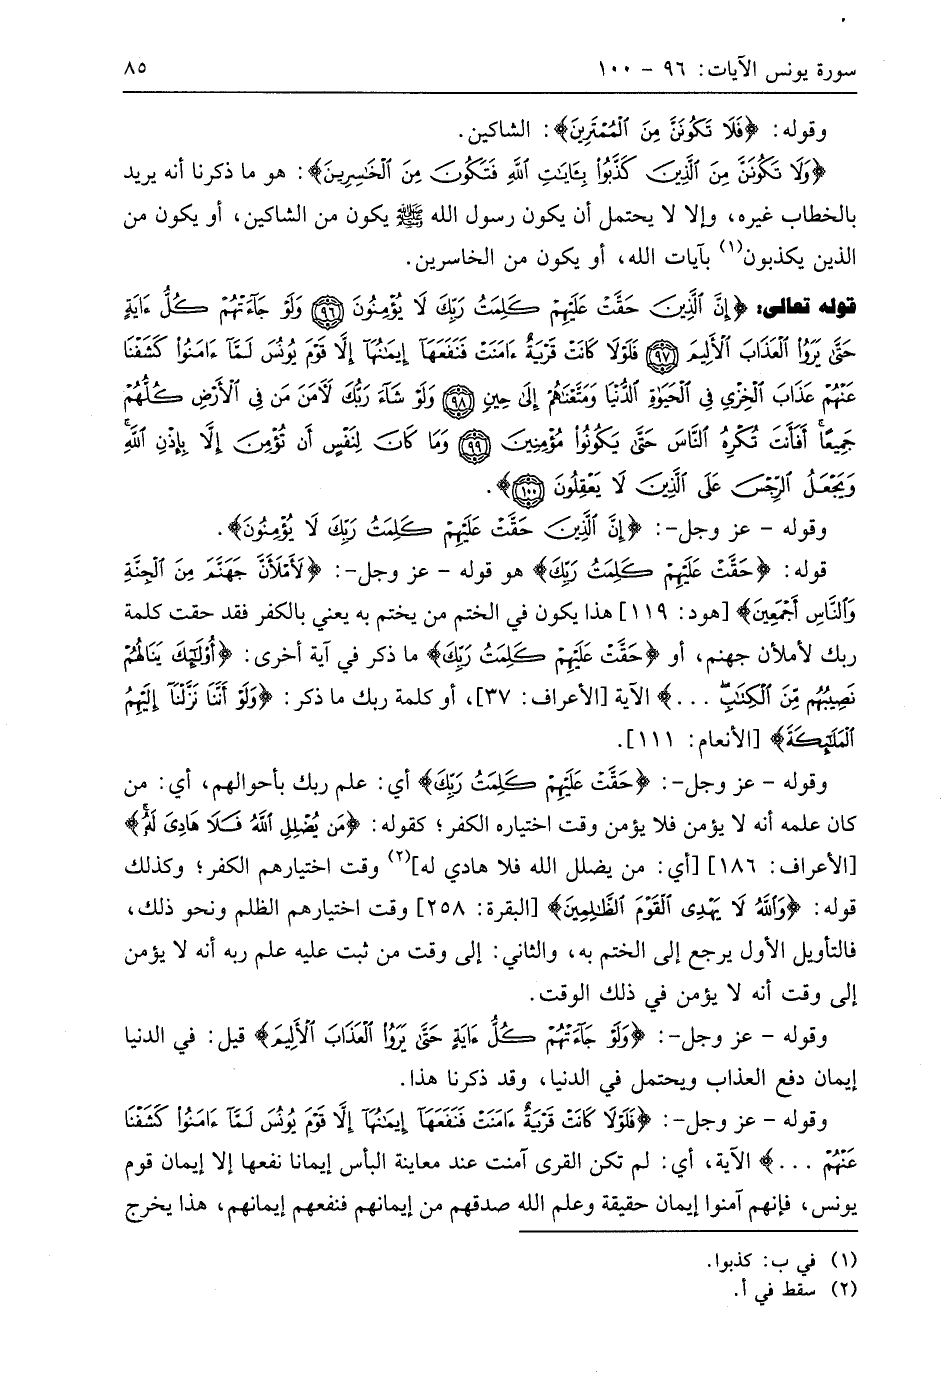 سورة يونس الآيات: ٩٦ - ١٠٠ ٨٥
وقوله: ﴿فَلَا تَكُونَنَّ مِنَ ٱلْمُمْتَرِينَ﴾: الشاكين.
﴿وَلَا تَكُونَنَّ مِنَ ٱلَّذِينَ كَذَّبُوا۟ بِـَٔايَـٰتِ ٱللَّهِ فَتَكُونَ مِنَ ٱلْخَـٰسِرِينَ﴾: هو ما ذكرنا أنه يريد
بالخطاب غيره، وإلا لا يحتمل أن يكون رسول الله ﷺ يكون من الشاكين، أو يكون من
الذين يكذبون(١) بآيات الله، أو يكون من الخاسرين.
قوله تعالى: ﴿إِنَّ ٱلَّذِينَ حَقَّتْ عَلَيْهِمْ كَلِمَتُ رَبِّكَ لَا يُؤْمِنُونَ ٩٦ وَلَوْ جَآءَتْهُمْ كُلُّ ءَايَةٍ
حَتَّىٰ يَرَوُا۟ ٱلْعَذَابَ ٱلْأَلِيمَ ٩٧ فَلَوْلَا كَانَتْ قَرْيَةٌ ءَامَنَتْ فَنَفَعَهَآ إِيمَـٰنُهَآ إِلَّا قَوْمَ يُونُسَ لَمَّآ ءَامَنُوا۟ كَشَفْنَا
عَنْهُمْ عَذَابَ ٱلْخِزْىِ فِى ٱلْحَيَوٰةِ ٱلدُّنْيَا وَمَتَّعْنَـٰهُمْ إِلَىٰ حِينٍ ٩٨ وَلَوْ شَآءَ رَبُّكَ لَـَٔامَنَ مَن فِى ٱلْأَرْضِ كُلُّهُمْ
جَمِيعًا ۚ أَفَأَنتَ تُكْرِهُ ٱلنَّاسَ حَتَّىٰ يَكُونُوا۟ مُؤْمِنِينَ ٩٩ وَمَا كَانَ لِنَفْسٍ أَن تُؤْمِنَ إِلَّا بِإِذْنِ ٱللَّهِ ۚ
وَيَجْعَلُ ٱلرِّجْسَ عَلَى ٱلَّذِينَ لَا يَعْقِلُونَ ١٠٠﴾.
وقوله - عز وجل-: ﴿إِنَّ ٱلَّذِينَ حَقَّتْ عَلَيْهِمْ كَلِمَتُ رَبِّكَ لَا يُؤْمِنُونَ﴾.
قوله: ﴿حَقَّتْ عَلَيْهِمْ كَلِمَتُ رَبِّكَ﴾ هو قوله - عز وجل-: ﴿لَأَمْلَأَنَّ جَهَنَّمَ مِنَ ٱلْجِنَّةِ
وَٱلنَّاسِ أَجْمَعِينَ﴾ [هود: ١١٩] هذا يكون في الختم من يختم به يعني بالكفر فقد حقت كلمة
ربك لأملأن جهنم، أو ﴿حَقَّتْ عَلَيْهِمْ كَلِمَتُ رَبِّكَ﴾ ما ذكر في آية أخرى: ﴿أُو۟لَـٰٓئِكَ يَنَالُهُمْ
نَصِيبُهُم مِّنَ ٱلْكِتَـٰبِ ۖ ...﴾ الآية [الأعراف: ٣٧]، أو كلمة ربك ما ذكر: ﴿وَلَوْ أَنَّنَا نَزَّلْنَآ إِلَيْهِمُ
ٱلْمَلَـٰٓئِكَةَ﴾ [الأنعام: ١١١].
وقوله - عز وجل-: ﴿حَقَّتْ عَلَيْهِمْ كَلِمَتُ رَبِّكَ﴾ أي: علم ربك بأحوالهم، أي: من
كان علمه أنه لا يؤمن فلا يؤمن وقت اختياره الكفر؛ كقوله: ﴿مَن يُضْلِلِ ٱللَّهُ فَلَا هَادِىَ لَهُۥ ۚ﴾
[الأعراف: ١٨٦] [أي: من يضلل الله فلا هادي له](٢) وقت اختيارهم الكفر؛ وكذلك
قوله: ﴿وَٱللَّهُ لَا يَهْدِى ٱلْقَوْمَ ٱلظَّـٰلِمِينَ﴾ [البقرة: ٢٥٨] وقت اختيارهم الظلم ونحو ذلك،
فالتأويل الأول يرجع إلى الختم به، والثاني: إلى وقت من ثبت عليه علم ربه أنه لا يؤمن
إلى وقت أنه لا يؤمن في ذلك الوقت.
وقوله - عز وجل-: ﴿وَلَوْ جَآءَتْهُمْ كُلُّ ءَايَةٍ حَتَّىٰ يَرَوُا۟ ٱلْعَذَابَ ٱلْأَلِيمَ﴾ قيل: في الدنيا
إيمان دفع العذاب ويحتمل في الدنيا، وقد ذكرنا هذا.
وقوله - عز وجل-: ﴿فَلَوْلَا كَانَتْ قَرْيَةٌ ءَامَنَتْ فَنَفَعَهَآ إِيمَـٰنُهَآ إِلَّا قَوْمَ يُونُسَ لَمَّآ ءَامَنُوا۟ كَشَفْنَا
عَنْهُمْ ...﴾ الآية، أي: لم تكن القرى آمنت عند معاينة البأس إيمانا نفعها إلا إيمان قوم
يونس، فإنهم آمنوا إيمان حقيقة وعلم الله صدقهم من إيمانهم فنفعهم إيمانهم، هذا يخرج
(١) في ب: كذبوا.
(٢) سقط في أ.